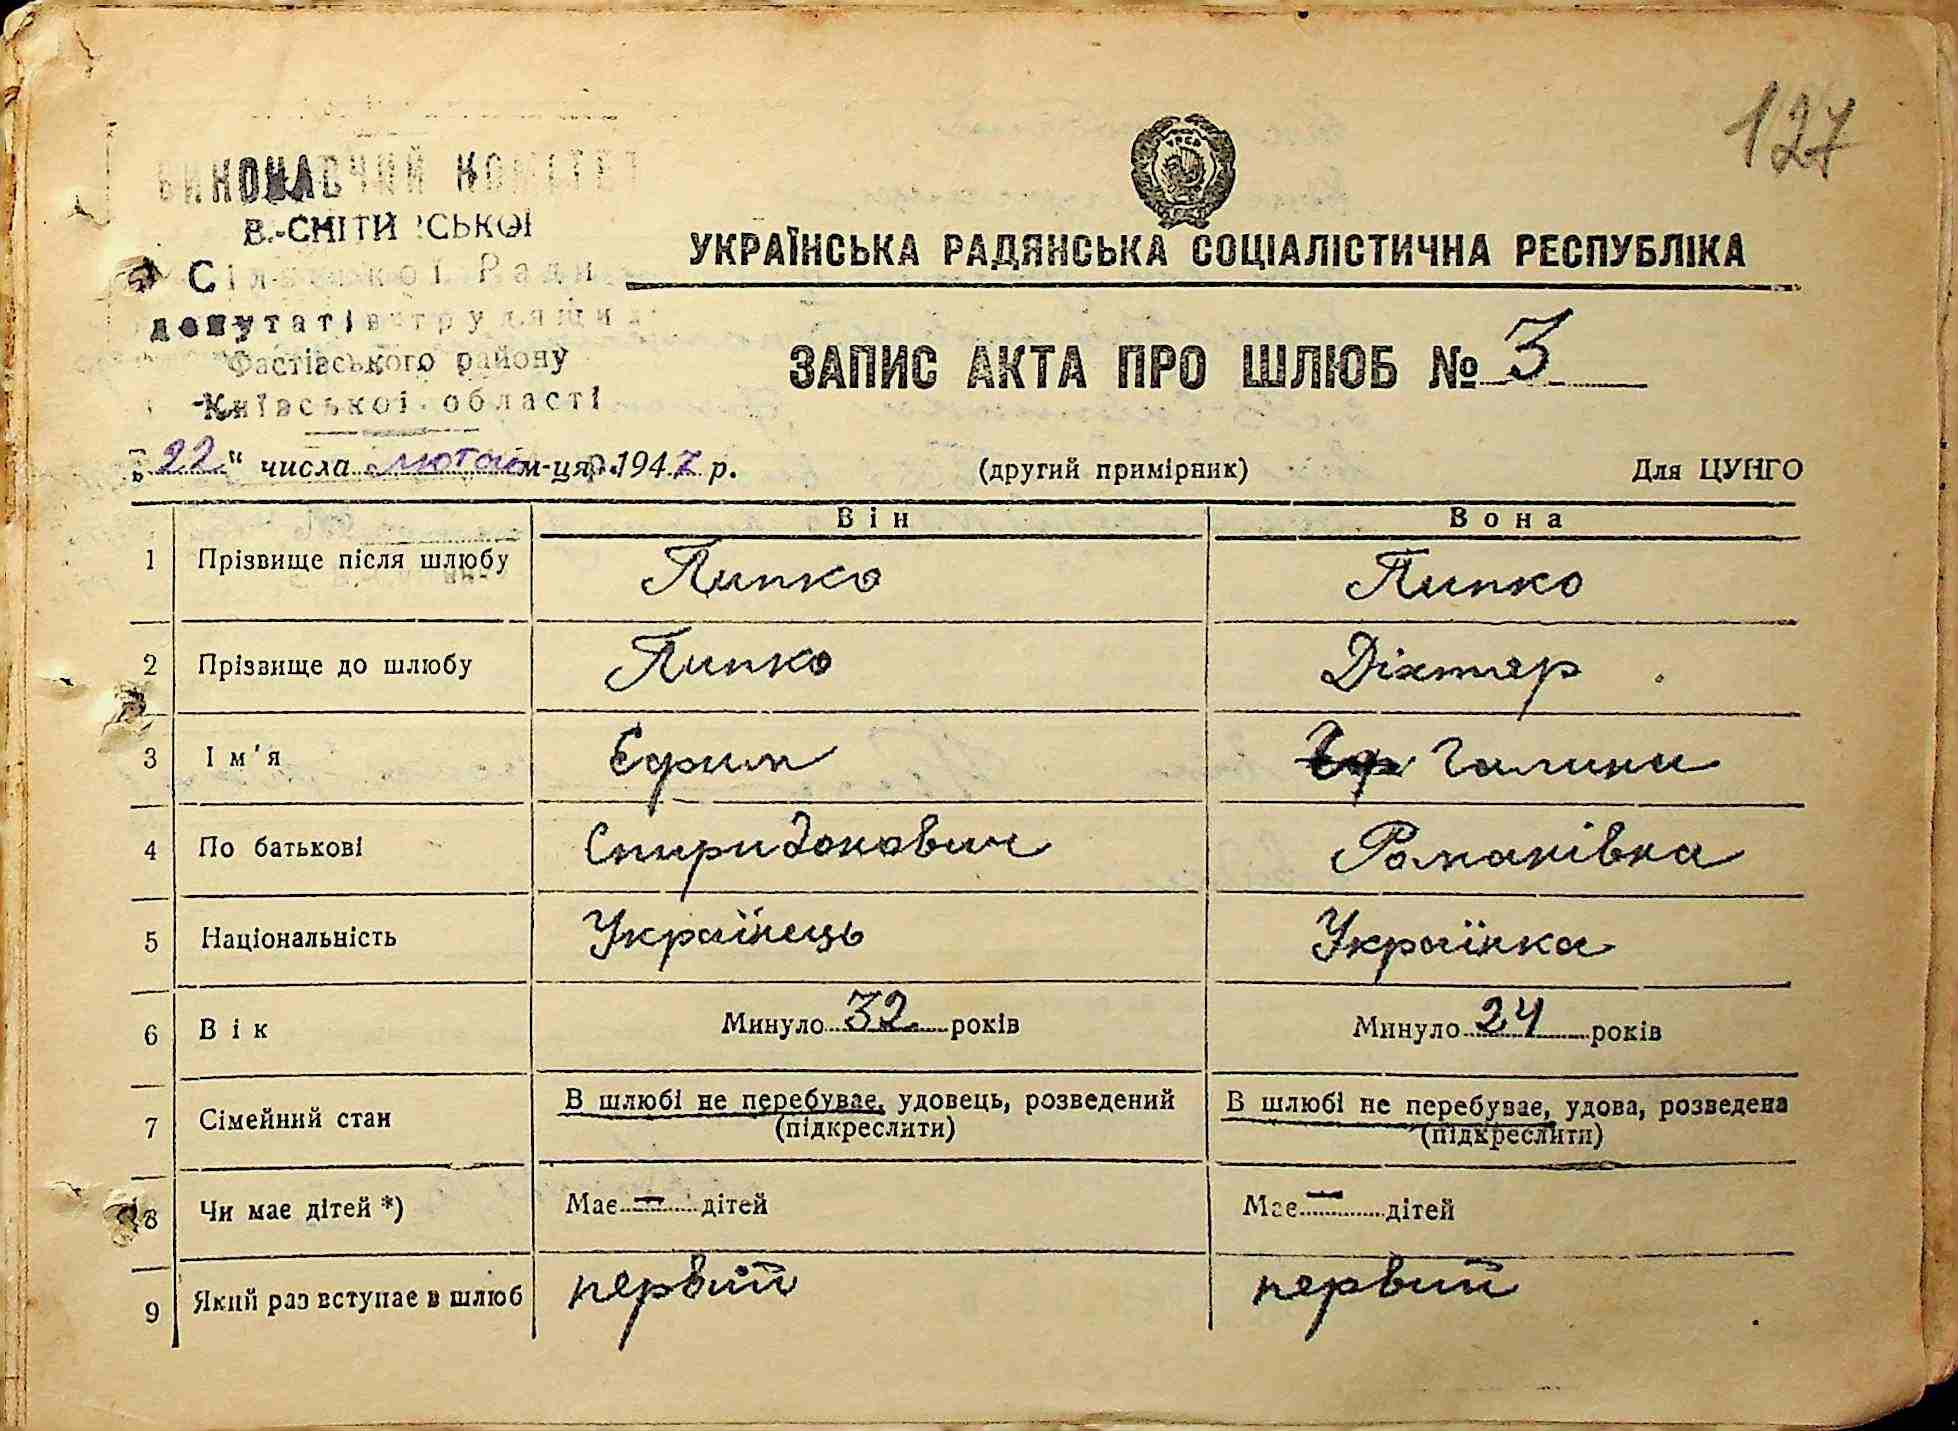 127
ВИКОНАВЧИЙ КОМІТЕТ
В.-СНІТИ СЬКОЇ
Сільської Ради
депутатів трудящих
Фастівського району
Київської області
УРСР
УКРАЇНСЬКА РАДЯНСЬКА СОЦІАЛІСТИЧНА РЕСПУБЛІКА
ЗАПИС АКТА ПРО ШЛЮБ № 3
„22" числа лютого м-ця 1947 р. (другий примірник) Для ЦУНГО
Він Вона
1 Прізвище після шлюбу Пипко Пипко
2 Прізвище до шлюбу Пипко Діхтяр
3 Ім'я Єфим Галина
4 По батькові Спиридонович Романівна
5 Національність Українець Українка
6 Вік Минуло 32 років Минуло 24 років
7 Сімейний стан В шлюбі не перебуває, удовець, розведений (підкреслити) В шлюбі не перебуває, удова, розведена (підкреслити)
8 Чи має дітей *) Має — дітей Має — дітей
9 Який раз вступає в шлюб первий первий